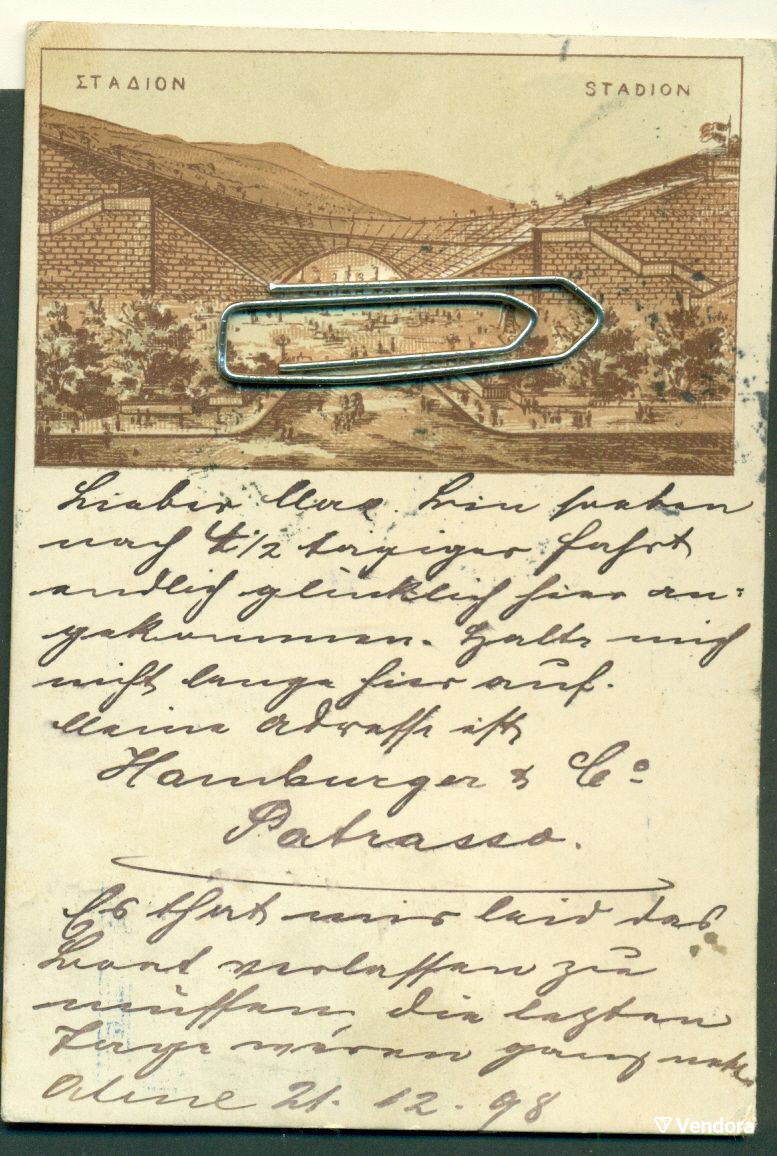 ΣΤΑΔΙΟΝ
STADION
Lieber Max. Bin soeben
nach 4 1/2 tägiger Fahrt
endlich glücklich hier an=
gekommen. Halte mich
nicht lange hier auf.
Meine Adresse ist
Hamburger & Co
Patrasso.
Es that mir leid das
Boot verlassen zu
müssen die letzten
Tage waren ganz nett.
21. 12. 98
Vendora